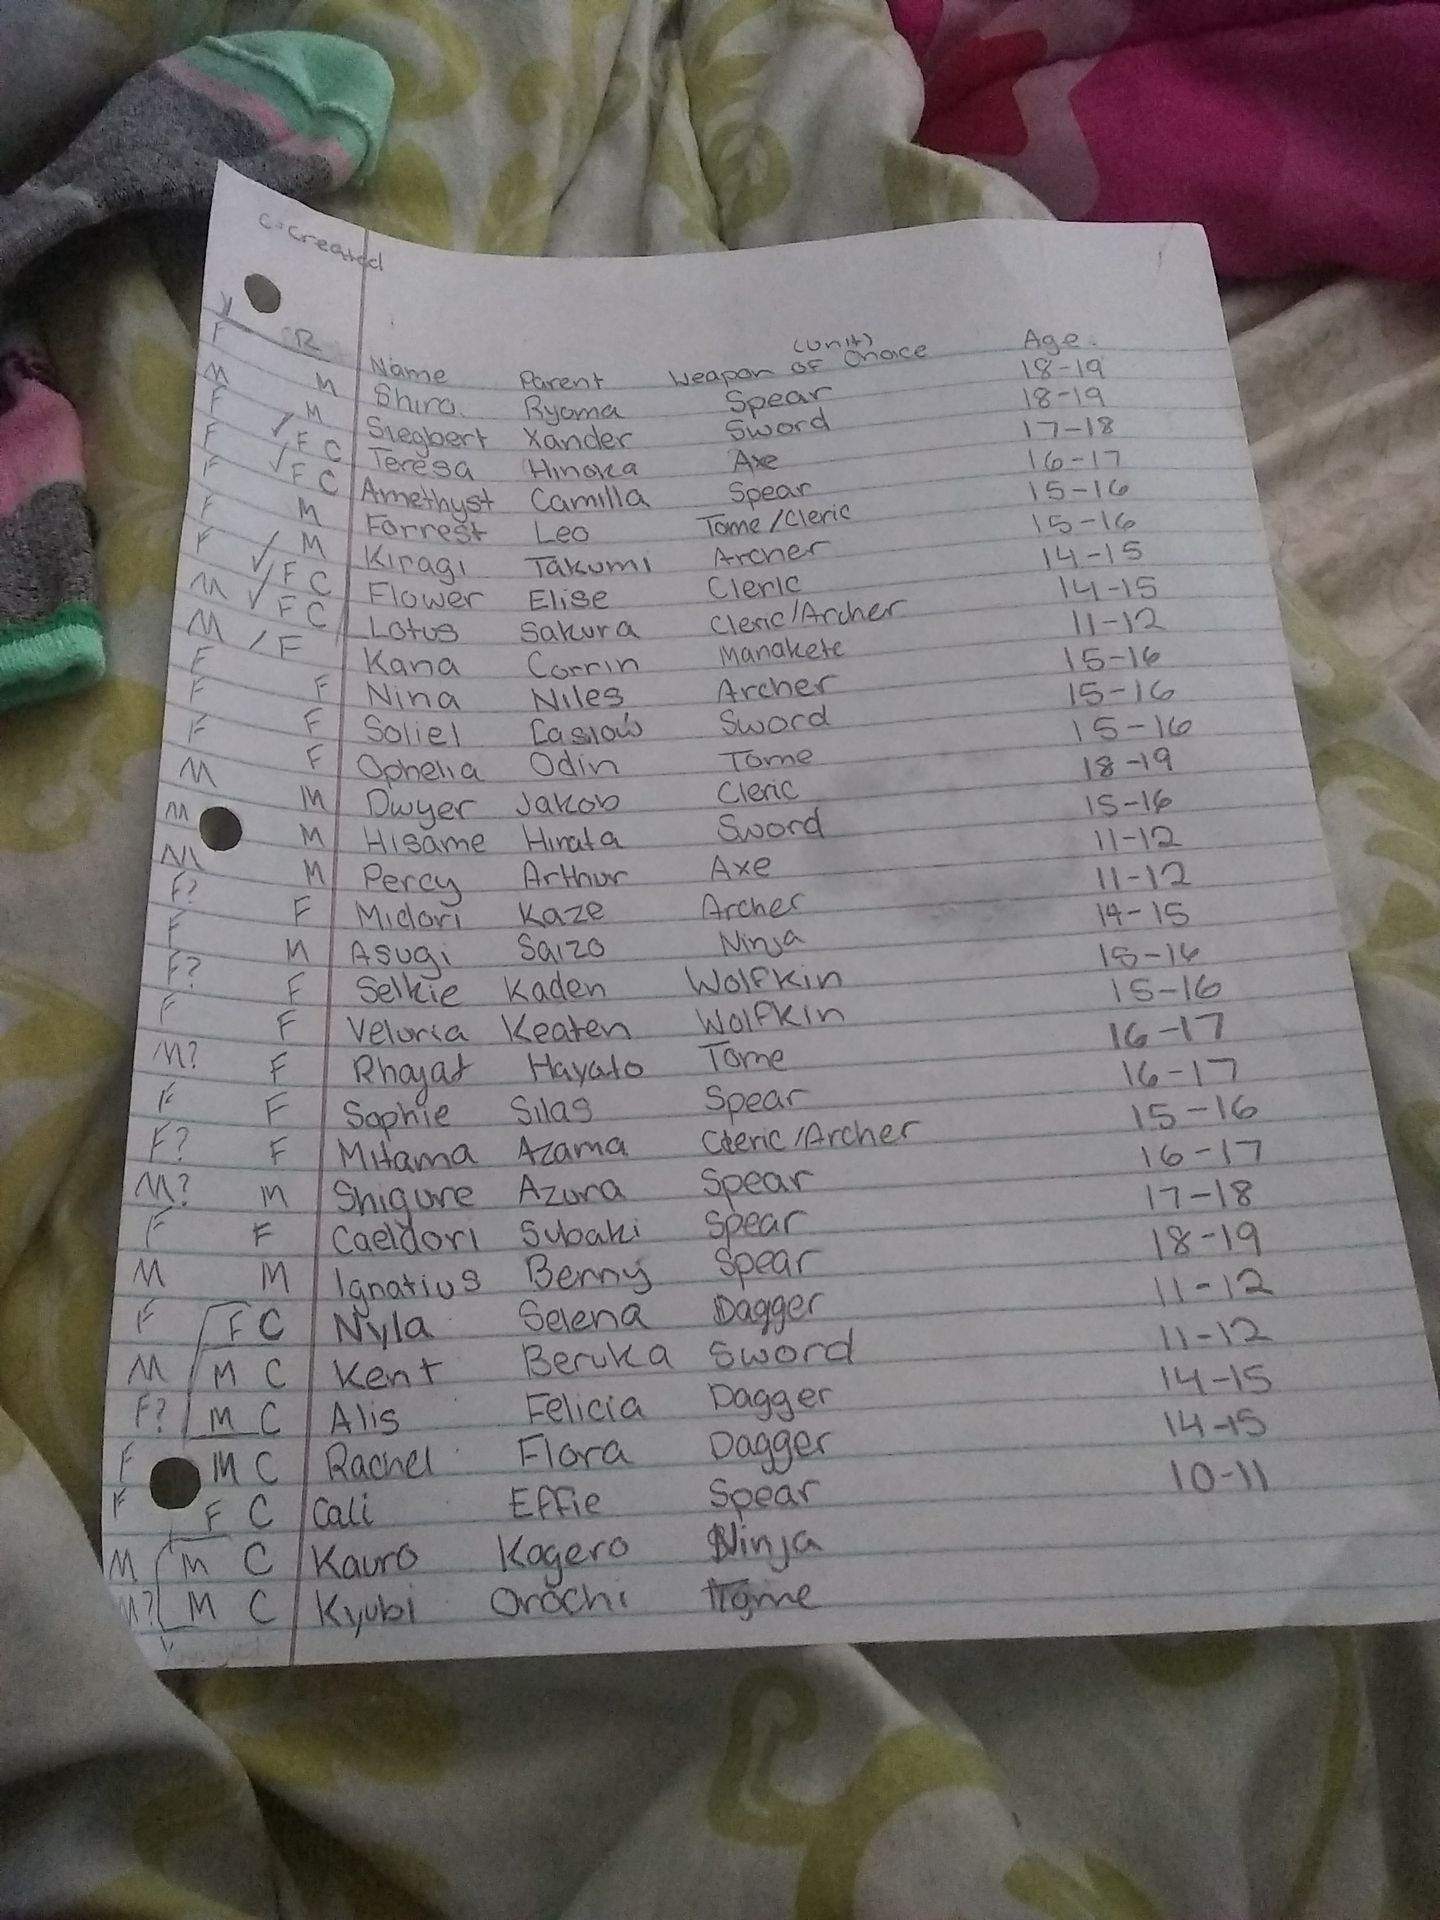 C=Created
Y R Name Parent (Unit) Weapon of Choice Age:
F M Shiro Ryoma Spear 18-19
M M Siegbert Xander Sword 18-19
F ✓ F C Teresa Hinoka Axe 17-18
F ✓ F C Amethyst Camilla Spear 16-17
F M Forrest Leo Tome/Cleric 15-16
F M Kiragi Takumi Archer 15-16
F ✓ F C Flower Elise Cleric 14-15
M ✓ F C Lotus Sakura Cleric/Archer 14-15
M / F Kana Corrin Manakete 11-12
F F Nina Niles Archer 15-16
F F Soliel Laslow Sword 15-16
F F Ophelia Odin Tome 15-16
M M Dwyer Jakob Cleric 18-19
M M Hisame Hinata Sword 15-16
M M Percy Arthur Axe 11-12
F? F Midori Kaze Archer 11-12
F M Asugi Saizo Ninja 14-15
F? F Selkie Kaden Wolfkin 15-16
F F Veloria Keaten Wolfkin 15-16
M? F Rhajat Hayato Tome 16-17
F F Sophie Silas Spear 16-17
F? F Mitama Azama Cleric/Archer 15-16
M? M Shigure Azura Spear 16-17
F F Caeldori Subaki Spear 17-18
M M Ignatius Benny Spear 18-19
F F C Nyla Selena Dagger 11-12
M M C Kent Beruka Sword 11-12
F? M C Alis Felicia Dagger 14-15
F M C Rachel Flora Dagger 14-15
F F C Cali Effie Spear 10-11
M M C Kauro Kagero Ninja
M? M C Kyubi Orochi Tome